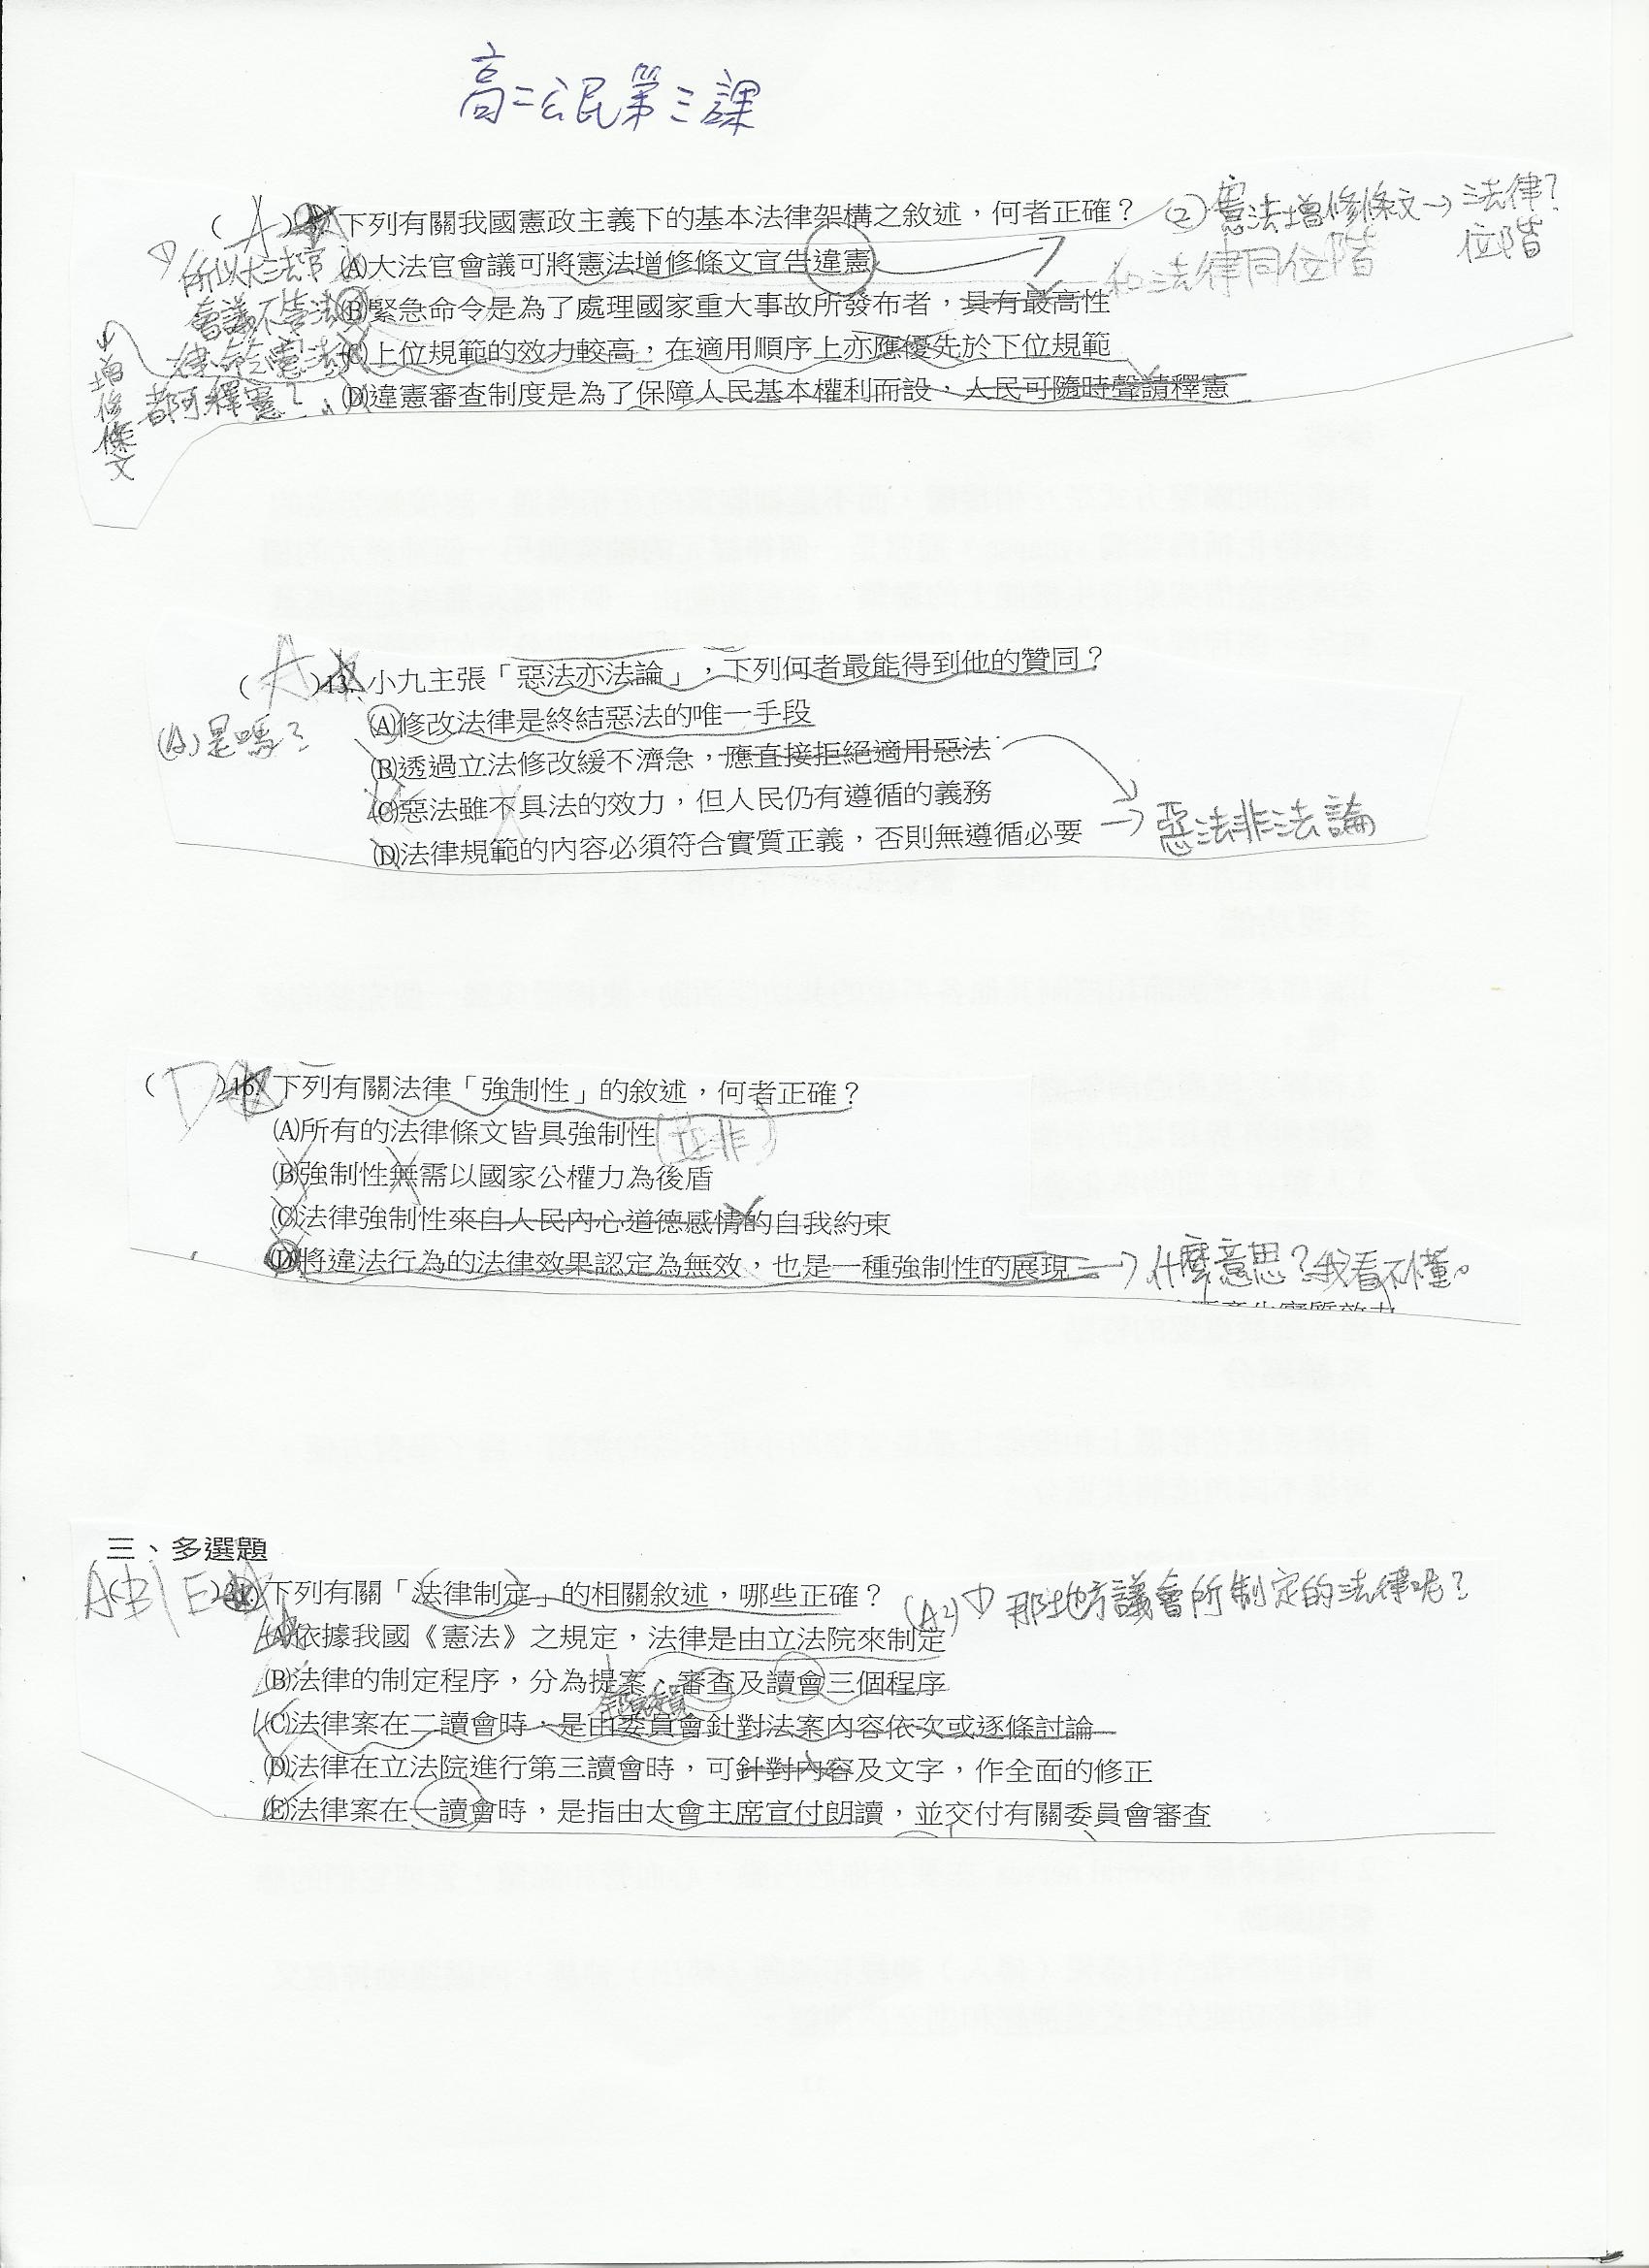 高二公民第三課
( A ) 下列有關我國憲政主義下的基本法律架構之敘述，何者正確？ (2) 憲法增修條文→法律？
位階
(A)大法官會議可將憲法增修條文宣告違憲 和法律同位階
(B)緊急命令是為了處理國家重大事故所發布者，具有最高性
(C)上位規範的效力較高，在適用順序上亦應優先於下位規範
(D)違憲審查制度是為了保障人民基本權利而設，人民可隨時聲請釋憲
所以大法官
會議不管法
律、命令、憲法
都可釋憲？
增修條文
( A )13. 小九主張「惡法亦法論」，下列何者最能得到他的贊同？
(A)是嗎？
(A)修改法律是終結惡法的唯一手段
(B)透過立法修改緩不濟急，應直接拒絕適用惡法
(C)惡法雖不具法的效力，但人民仍有遵循的義務
(D)法律規範的內容必須符合實質正義，否則無遵循必要 →惡法非法論
( D )16. 下列有關法律「強制性」的敘述，何者正確？
(A)所有的法律條文皆具強制性(並非)
(B)強制性無需以國家公權力為後盾
(C)法律強制性來自人民內心道德感情的自我約束
(D)將違法行為的法律效果認定為無效，也是一種強制性的展現→什麼意思？我看不懂。
三、多選題
ABE 下列有關「法律制定」的相關敘述，哪些正確？ (A) 那地方議會所制定的法律呢？
(A)依據我國《憲法》之規定，法律是由立法院來制定
(B)法律的制定程序，分為提案、審查及讀會三個程序
全院委員
(C)法律案在二讀會時，是由委員會針對法案內容依次或逐條討論
(D)法律在立法院進行第三讀會時，可針對內容及文字，作全面的修正
(E)法律案在一讀會時，是指由大會主席宣付朗讀，並交付有關委員會審查